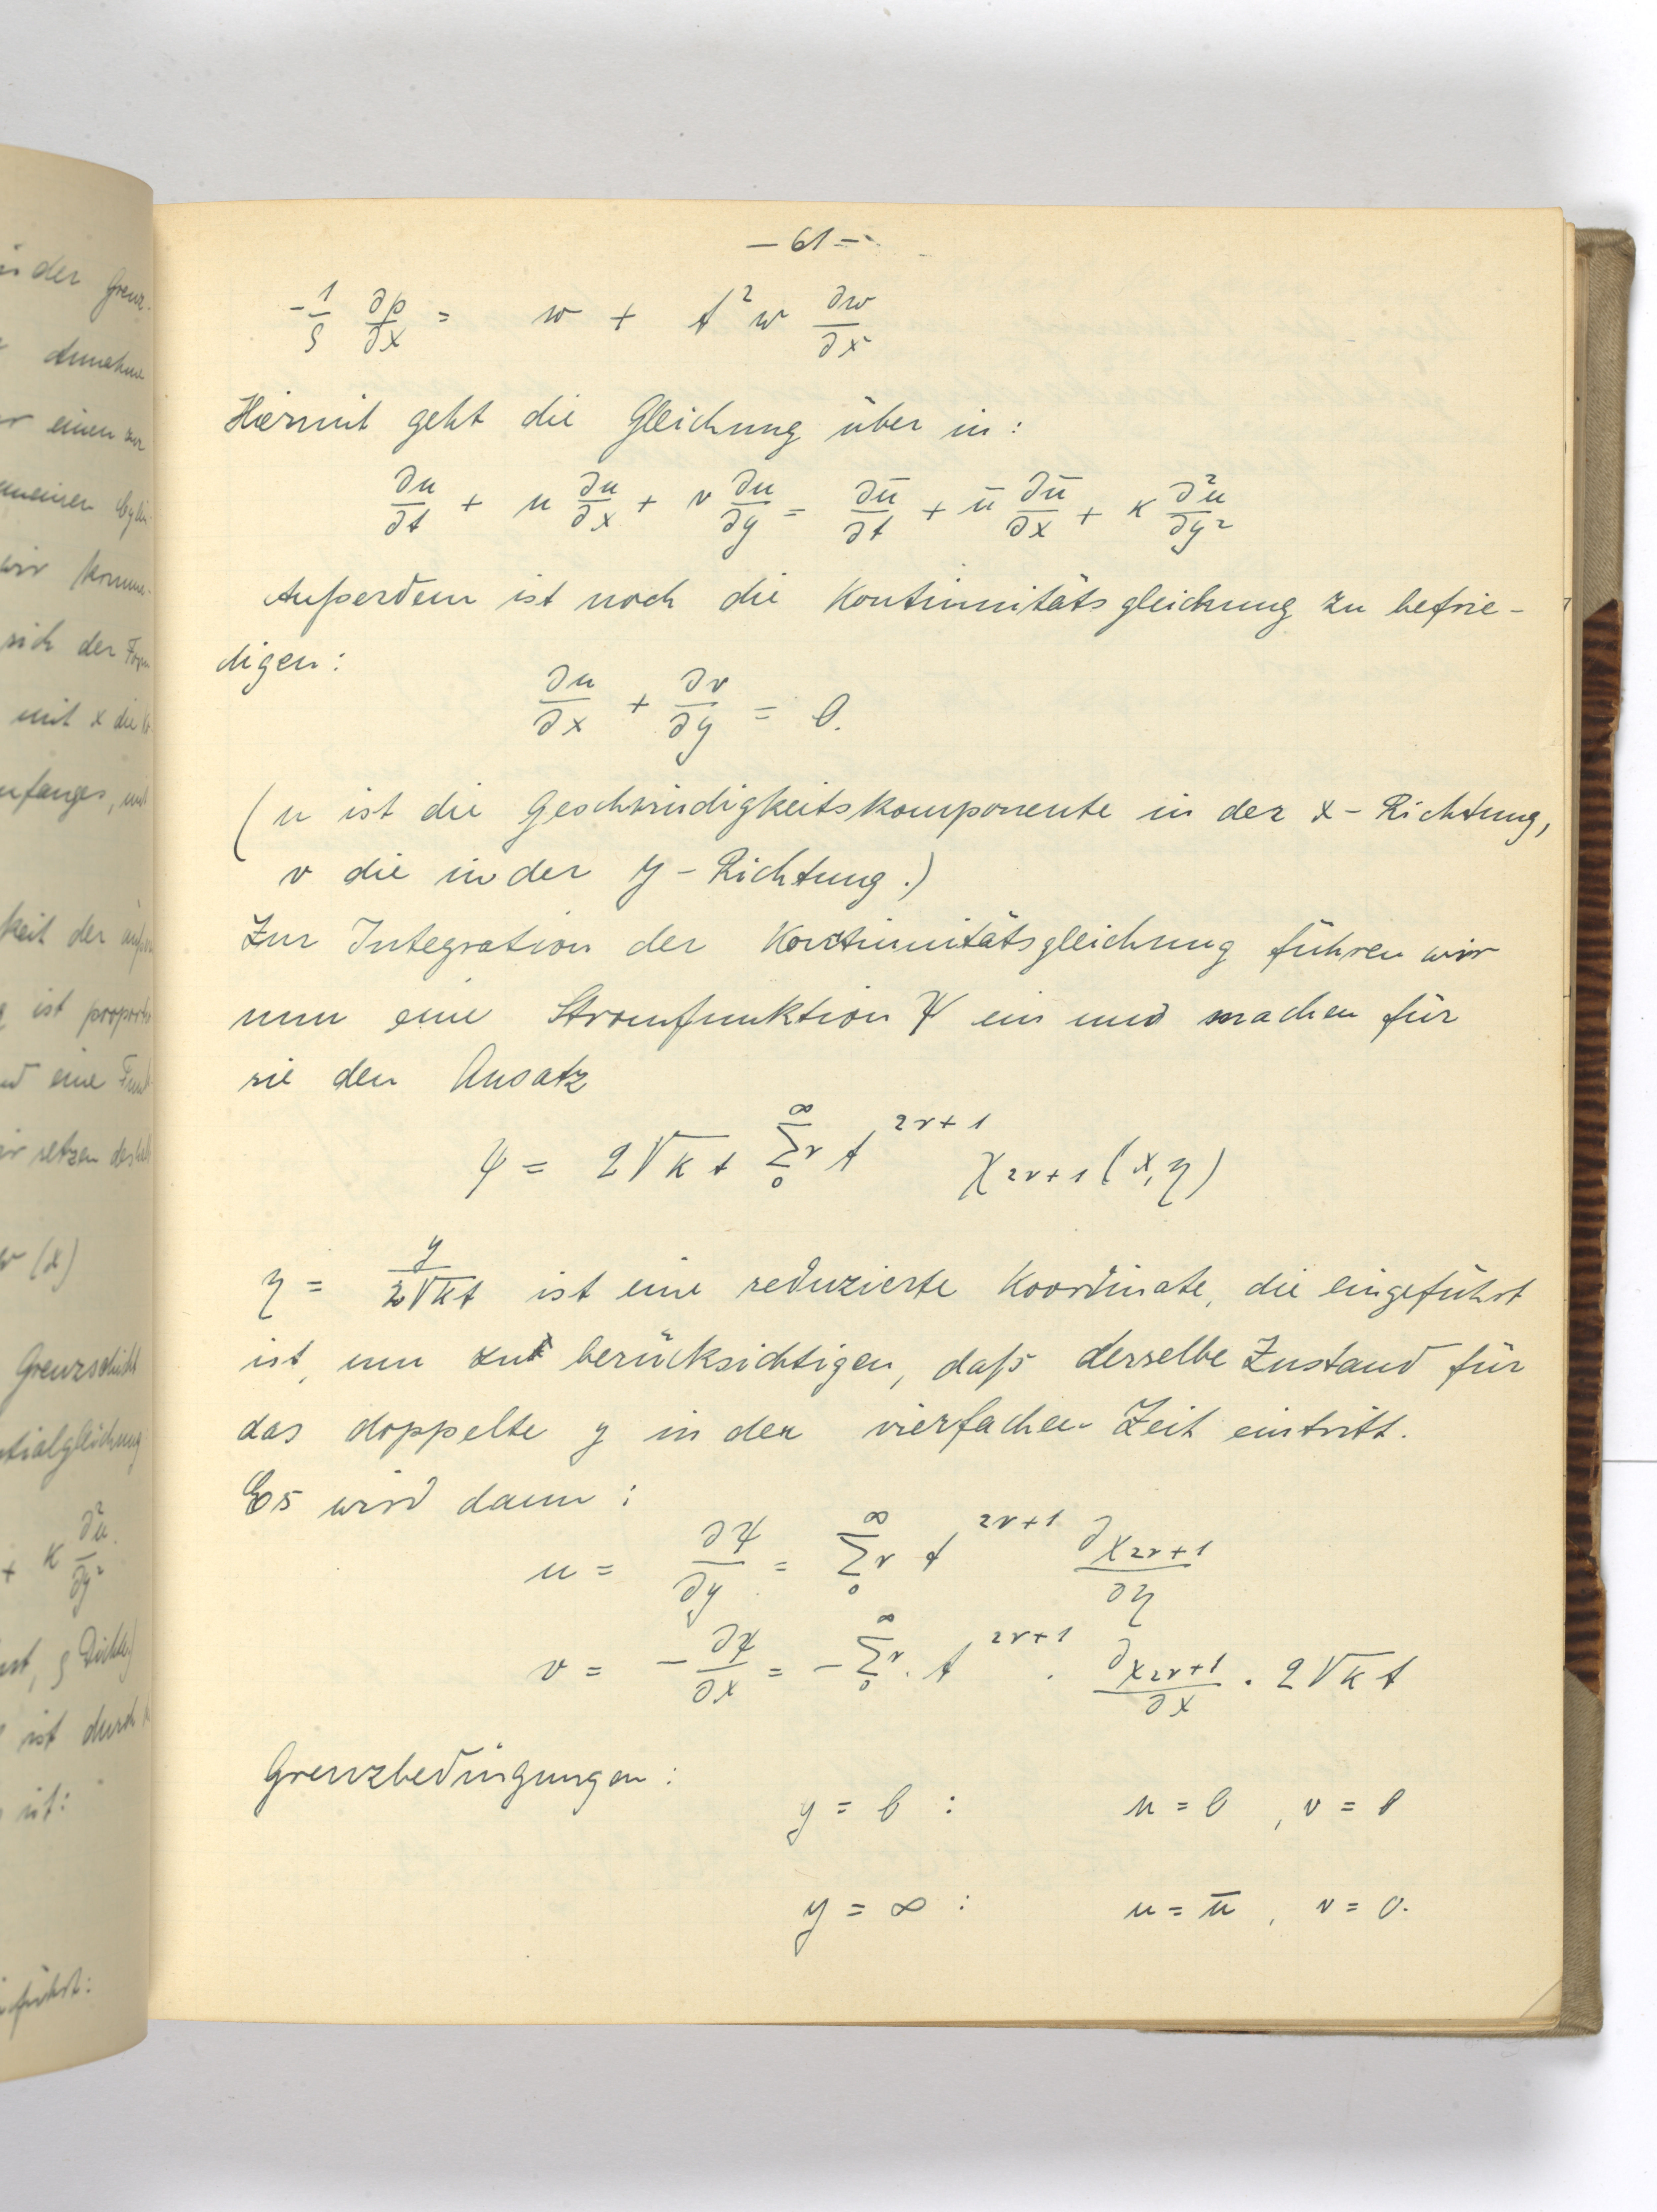 in der Grenz-
Annahme
einen zur
wir komme-
sich der Form
mit x die
nfanges, und
keit der äuße
ist proport
eine Funk
ir setzen deshalb
w (x)
Grenzschicht
ntialgleichung
+ κ ∂²u/∂y²
ist, ρ Dichte)
ist durch
ist:
führt:
– 61 –
-1/ρ ∂p/∂x = w + t² w ∂w/∂x
Hiermit geht die Gleichung über in:
∂u/∂t + u ∂u/∂x + v ∂u/∂y = ∂ū/∂t + ū ∂ū/∂x + κ ∂²u/∂y²
Außerdem ist noch die Kontinuitätsgleichung zu befrie-
digen:
∂u/∂x + ∂v/∂y = 0.
(u ist die Geschwindigkeitskomponente in der x-Richtung,
v die in der y-Richtung.)
Zur Integration der Kontinuitätsgleichung führen wir
nun eine Stromfunktion Ψ ein und machen für
sie den Ansatz
ψ = 2√κt ∑₀^∞ ν t^(2ν+1) χ_(2ν+1) (x, η)
η = y/(2√κt) ist eine reduzierte Koordinate, die eingeführt
ist, um zu berücksichtigen, daß derselbe Zustand für
das doppelte y in der vierfachen Zeit eintritt.
Es wird dann:
u = ∂ψ/∂y = ∑₀^∞ ν t^(2ν+1) ∂χ_(2ν+1)/∂η
v = -∂ψ/∂x = -∑₀^∞ ν · t^(2ν+1) · ∂χ_(2ν+1)/∂x · 2√κt
Grenzbedingungen:
y = 0 : u = 0 , v = 0
y = ∞ : u = ū , v = 0.